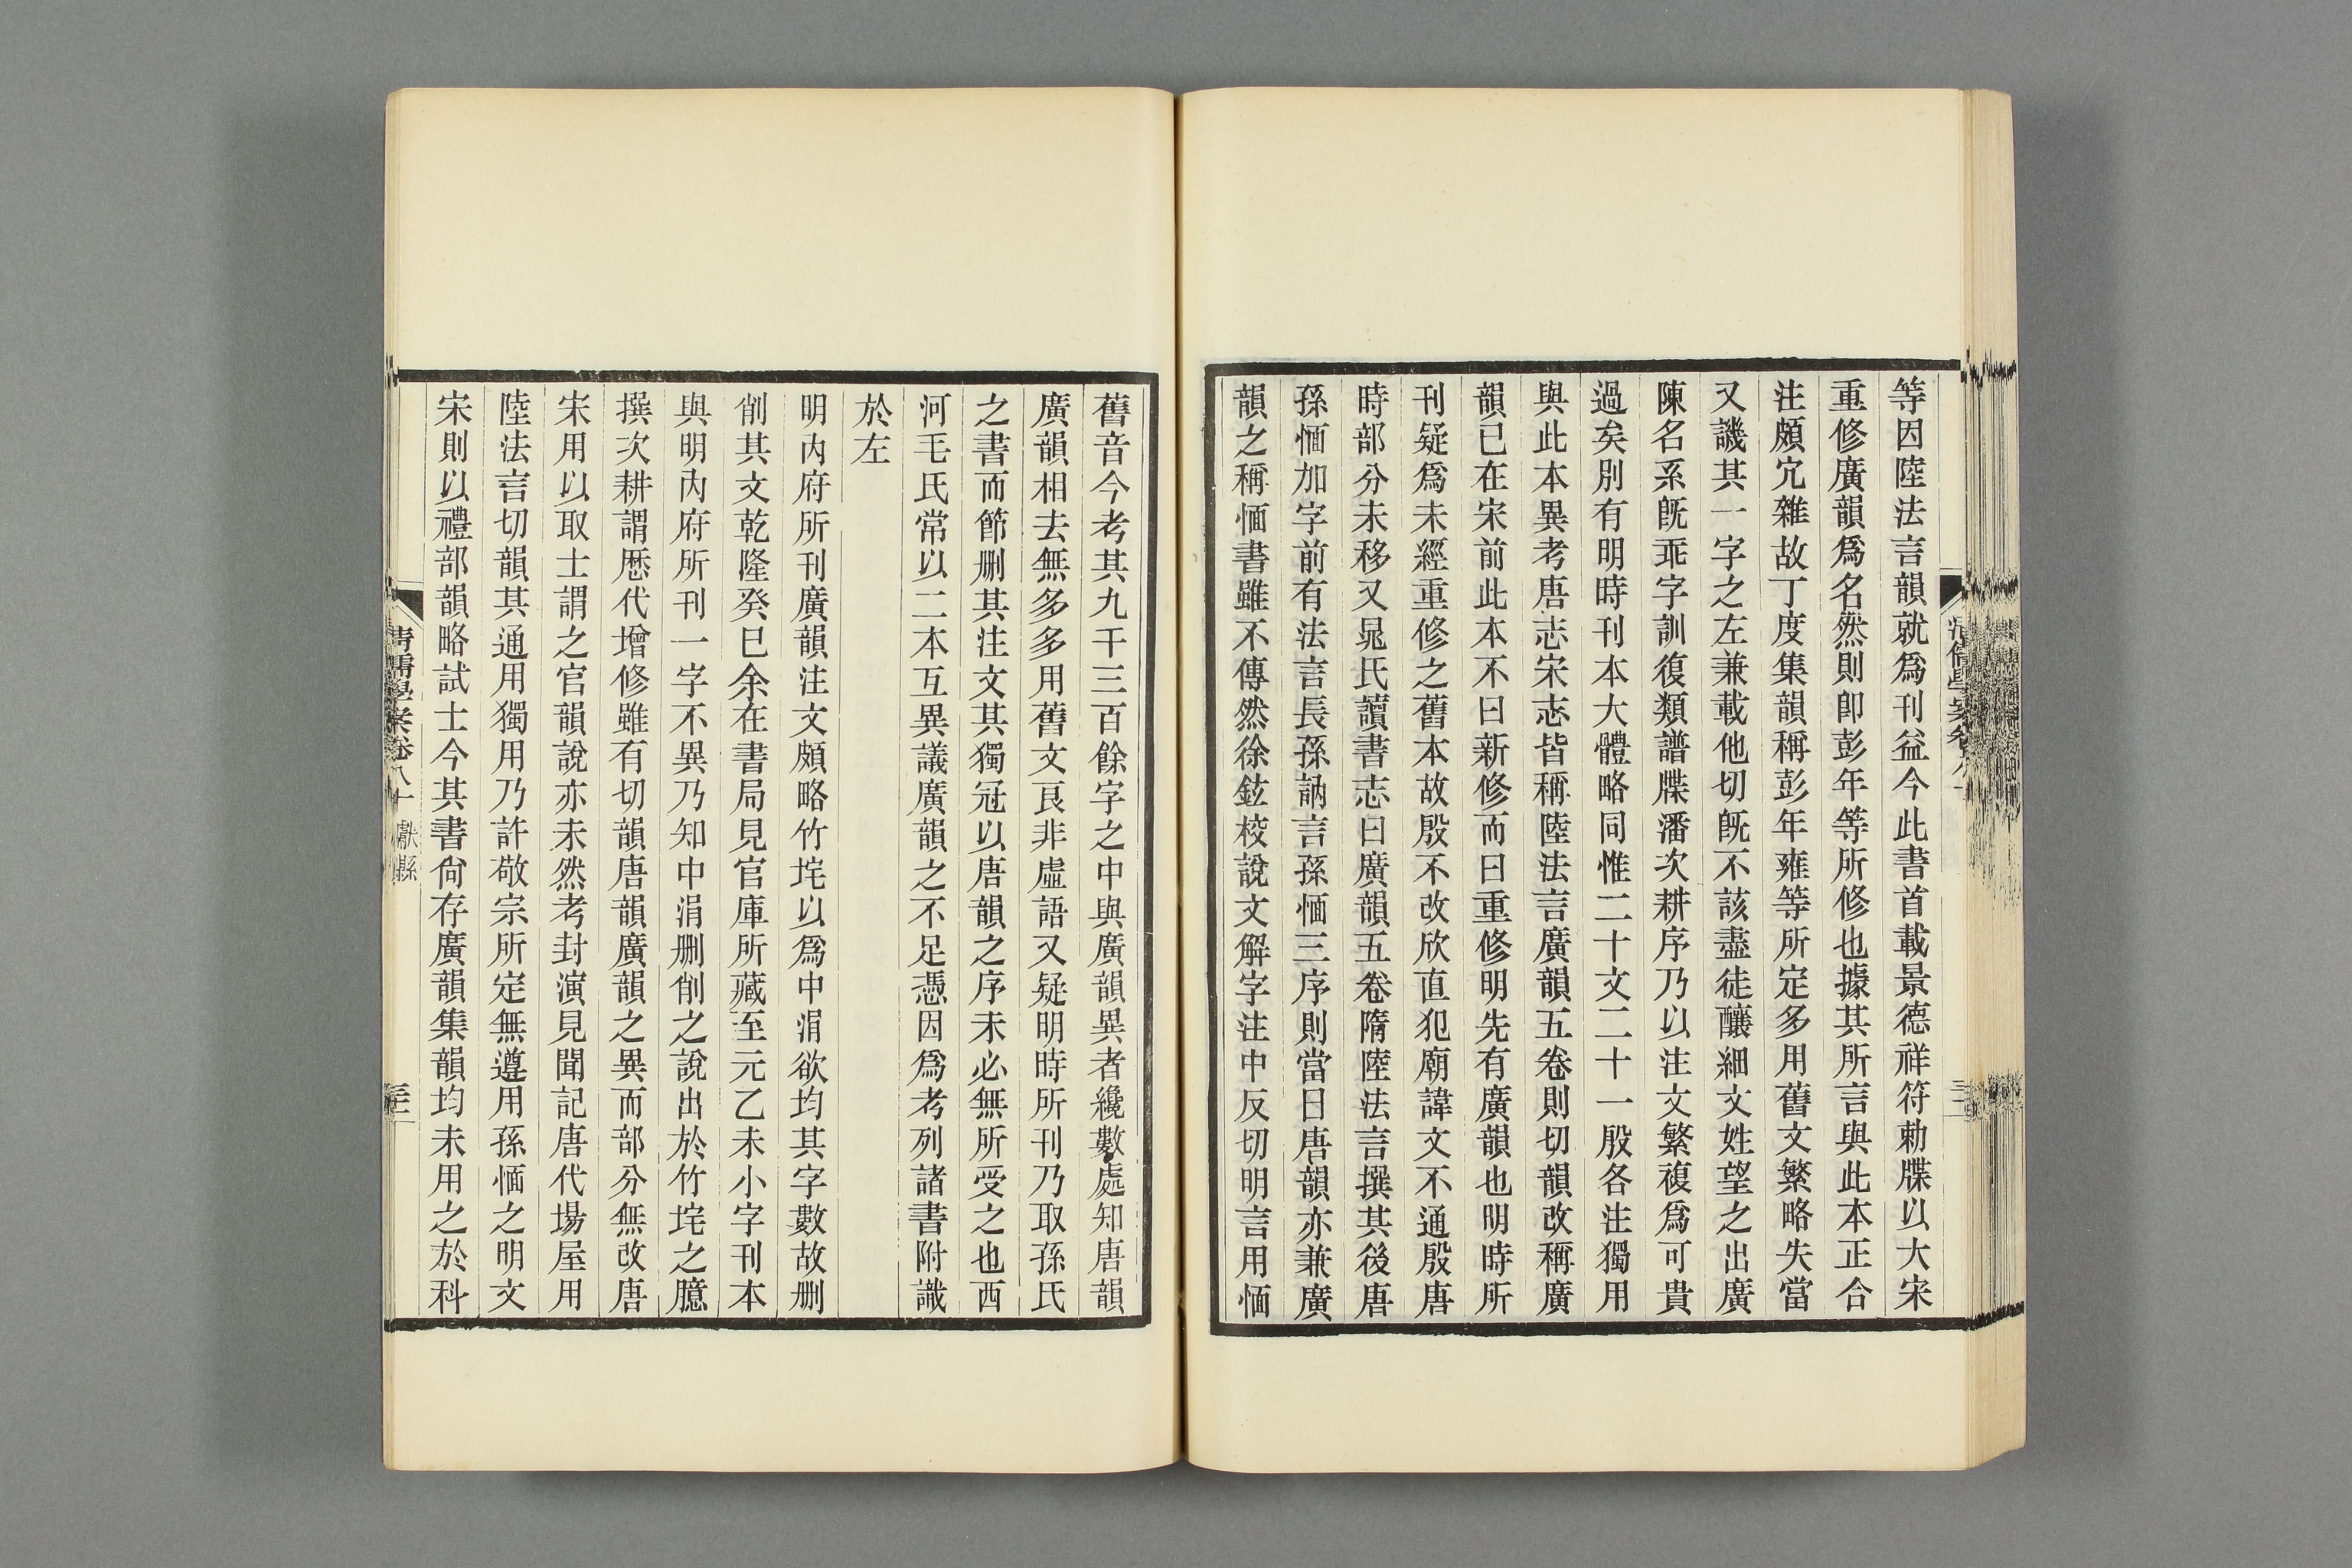 等因陸法言韻就爲刊益今此書首載景德祥符勅牒以大宋
重修廣韻爲名然則卽彭年等所修也據其所言與此本正合
注頗宂雜故丁度集韻稱彭年雍等所定多用舊文繁略失當
又譏其一字之左兼載他切旣不該盡徒釀細文姓望之出廣
陳名系旣乖字訓復類譜牒潘次耕序乃以注文繁複爲可貴
過矣別有明時刊本大體略同惟二十文二十一殷各注獨用
與此本異考唐志宋志皆稱陸法言廣韻五卷則切韻改稱廣
韻已在宋前此本不曰新修而曰重修明先有廣韻也明時所
刊疑爲未經重修之舊本故殷不改欣直犯廟諱文不通殷唐
時部分未移又晁氏讀書志曰廣韻五卷隋陸法言撰其後唐
孫愐加字前有法言長孫訥言孫愐三序則當日唐韻亦兼廣
韻之稱愐書雖不傳然徐鉉校說文解字注中反切明言用愐
舊音今考其九千三百餘字之中與廣韻異者纔數處知唐韻
廣韻相去無多多用舊文良非虛語又疑明時所刊乃取孫氏
之書而節删其注文其獨冠以唐韻之序未必無所受之也西
河毛氏常以二本互異議廣韻之不足憑因爲考列諸書附識
於左
明內府所刊廣韻注文頗略竹垞以爲中涓欲均其字數故删
削其文乾隆癸巳余在書局見官庫所藏至元乙未小字刊本
與明內府所刊一字不異乃知中涓删削之說出於竹垞之臆
撰次耕謂歷代增修雖有切韻唐韻廣韻之異而部分無改唐
宋用以取士謂之官韻說亦未然考封演見聞記唐代場屋用
陸法言切韻其通用獨用乃許敬宗所定無遵用孫愐之明文
宋則以禮部韻略試士今其書尙存廣韻集韻均未用之於科
清儒學案卷八十 獻縣